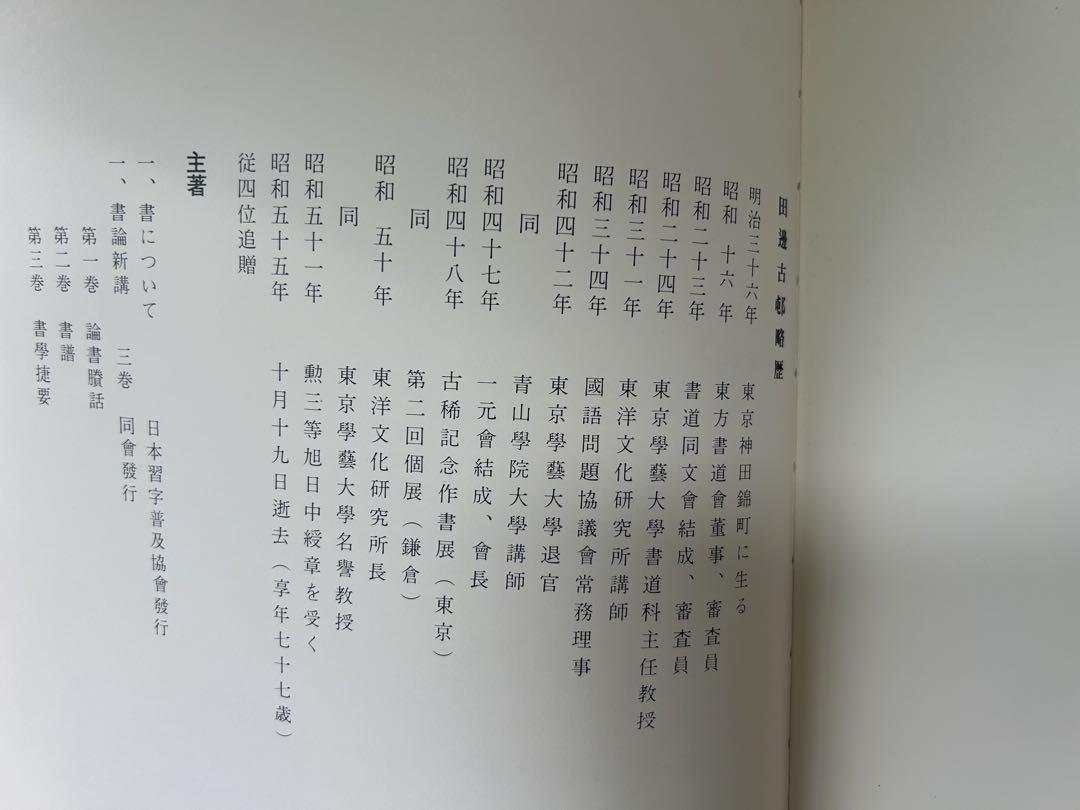 田邊古邨略歴
明治三十六年 東京神田錦町に生る
昭和 十六 年 東方書道會董事、審査員
昭和二十三年 書道同文會結成、審査員
昭和二十四年 東京學藝大學書道科主任教授
昭和三十一年 東洋文化研究所講師
昭和三十四年 國語問題協議會常務理事
昭和四十二年 東京學藝大學退官
同 青山學院大學講師
昭和四十七年 一元會結成、會長
昭和四十八年 古稀記念作書展（東京）
同 第二回個展（鎌倉）
昭和 五十 年 東洋文化研究所長
同 東京學藝大學名譽教授
昭和五十一年 勲三等旭日中綬章を受く
昭和五十五年 十月十九日逝去（享年七十七歳）
従四位追贈
主著
一、書について 日本習字普及協會發行
一、書論新講 三巻 同會發行
第一巻 論書賸話
第二巻 書譜
第三巻 書學捷要